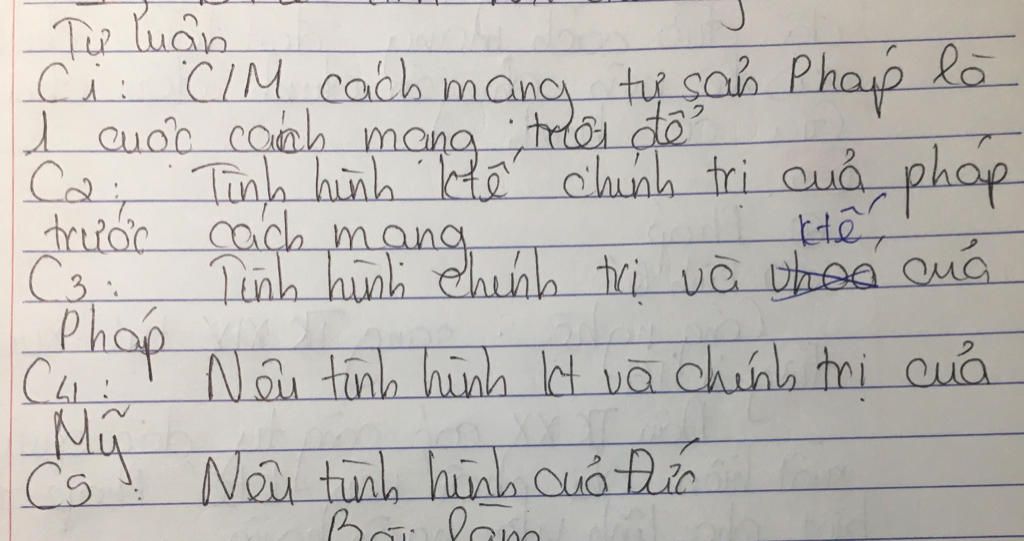 Tự luân
C1: C/M cách mạng tư sản Pháp là
1 cuộc cách mạng triệt để
C2: Tình hình ktế chính trị của pháp
trước cách mạng
ktế,
C3: Tình hình chính trị và của
Pháp
C4: Nêu tình hình kt và chính trị của
Mỹ
C5: Nêu tình hình của Đức
Bài làm